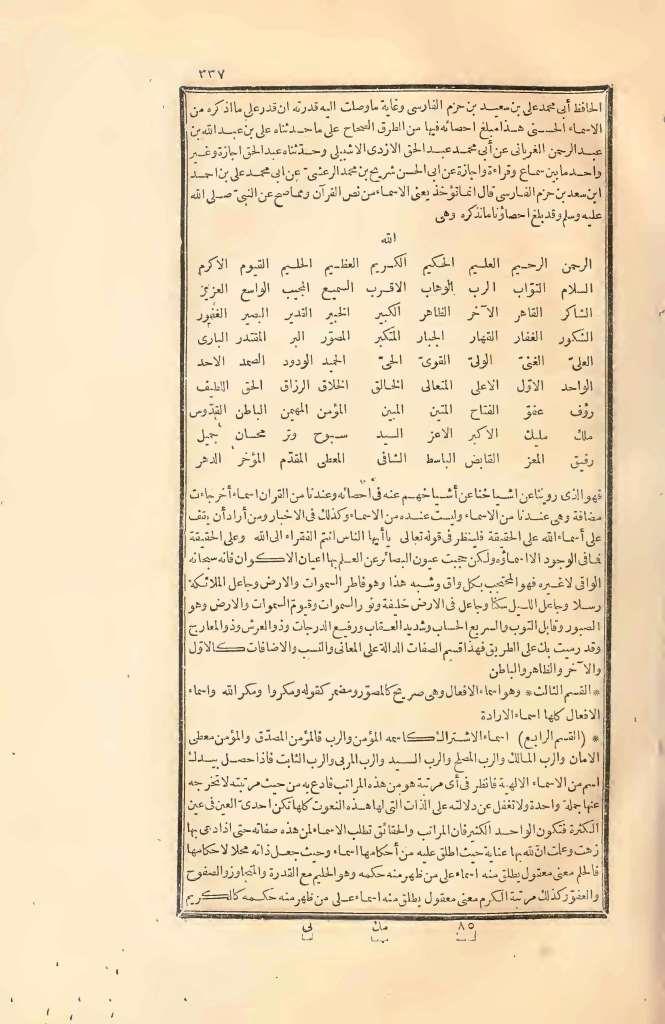 ٣٣٧
الحافظ أبي محمد على بن سعيد بن حزم الفارسى وغاية ما وصلت اليه قدرته ان قدر على ما اذكره من
الاسماء الحسنى هذا مبلغ احصائه فيها من الطرق الصحاح على ما حدثناه على بن عبد الله بن
عبد الرحمن الغريانى عن أبى محمد عبد الحق الازدى الاشبيلى وحدثناه عبد الحق اجازة وغير
واحد مابين سماع وقراءة واجازة عن ابى الحسن شريح بن محمد الرعينىّ عن ابى محمد على بن احمد
ابن سعد بن حزم الفارسى قال انما تؤخذ يعنى الاسماء من نص القرآن ومما صح عن النبىّ صلى الله
عليه وسلم وقد بلغ احصاؤنا ما نذكره وهى
الله
الرحمن الرحيم العليم الحكيم الكريم العظيم الحليم القيوم الاكرم
السلام التوّاب الرب الوهاب الاقرب السميع المجيب الواسع العزيز
الشاكر القاهر الآخر الظاهر الكبير الخبير القدير البصير الغفور
الشكور الغفار القهار الجبار المتكبر المصوّر البر المقتدر البارى
العلىّ الغنىّ الولىّ القوىّ الحىّ الحميد الودود الصمد الاحد
الواحد الاوّل الاعلى المتعالى الخالق الخلاق الرزاق الحق اللطيف
رؤف عفوّ الفتاح المتين المبين المؤمن المهيمن الباطن القدّوس
ملك مليك الاكبر الاعز السيد سبوح وتر محسان جميل
رفيق المعز القابض الباسط الشافى المعطى المقدّم المؤخر الدهر
فهو الذى روينا عن اشياخنا عن أشياخهم عنه فى احصائه وعندنا من القرآن اسماء أخر جاءت
مضافة وهى عندنا من الاسماء وليست عنده من الاسماء وكذلك فى الاخبار ومن أراد أن يقف
على أسماء الله على الحقيقة فلينظر فى قوله تعالى ياأيها الناس انتم الفقراء الى الله وعلى الحقيقة
فمافى الوجود الا اسماؤه ولكن حجبت عيون البصائر عن العلم بها اعيان الاكوان فانه سبحانه
الواقى لاغيره فهو المحتجب بكل واق وشبه هذا وهو فاطر السموات والارض وجاعل الملائكة
رسلا وجاعل الليل سكنا وجاعل فى الارض خليفة ونور السموات وقيوم السموات والارض وهو
الصبور وقابل التوب والسريع الحساب وشديد العقاب ورفيع الدرجات وذو العرش وذو المعارج
وقد رميت بك على الطريق فهذا قسم الصفات الدالة على المعانى والنسب والاضافات كالاوّل
والآخر والظاهر والباطن
* القسم الثالث * وهو اسماء الافعال وهى صريح كالمصوّر ومضمر كقوله ومكروا ومكر الله واسماء
الافعال كلها اسماء الارادة
* (القسم الرابع) اسماء الاشتراك كاسمه المؤمن والرب فالمؤمن المصدّق والمؤمن معطى
الامان والرب المالك والرب المصلح والرب السيد والرب المربى والرب الثابت فاذا حصل بيدك
اسم من الاسماء الالهية فانظر فى أى مرتبة هو من هذه المراتب فادع به من حيث مرتبته لا تخرجه
عنها جملة واحدة ولا تغفل عن دلالته على الذات التى لها هذه النعوت كلها تكن احدى العين فى عين
الكثرة فتكون الواحد الكثير فان المراتب والحقائق تطلب الاسماء لمن هذه صفاته حتى اذا دعى بها
زهت وعلمت ان لله بها عناية حيث اطلق عليه من أحكامها اسماء وحيث جعل ذاته محلا لاحكامها
فالحلم معنى معقول يطلق منه اسماء على من ظهر منه حكمه وهو الحليم مع القدرة والمتجاوز والصفوح
والعفوّ وكذلك مرتبة الكرم معنى معقول يطلق منه اسماء على من ظهر منه حكمه كالكريم
٨٥ مك نى